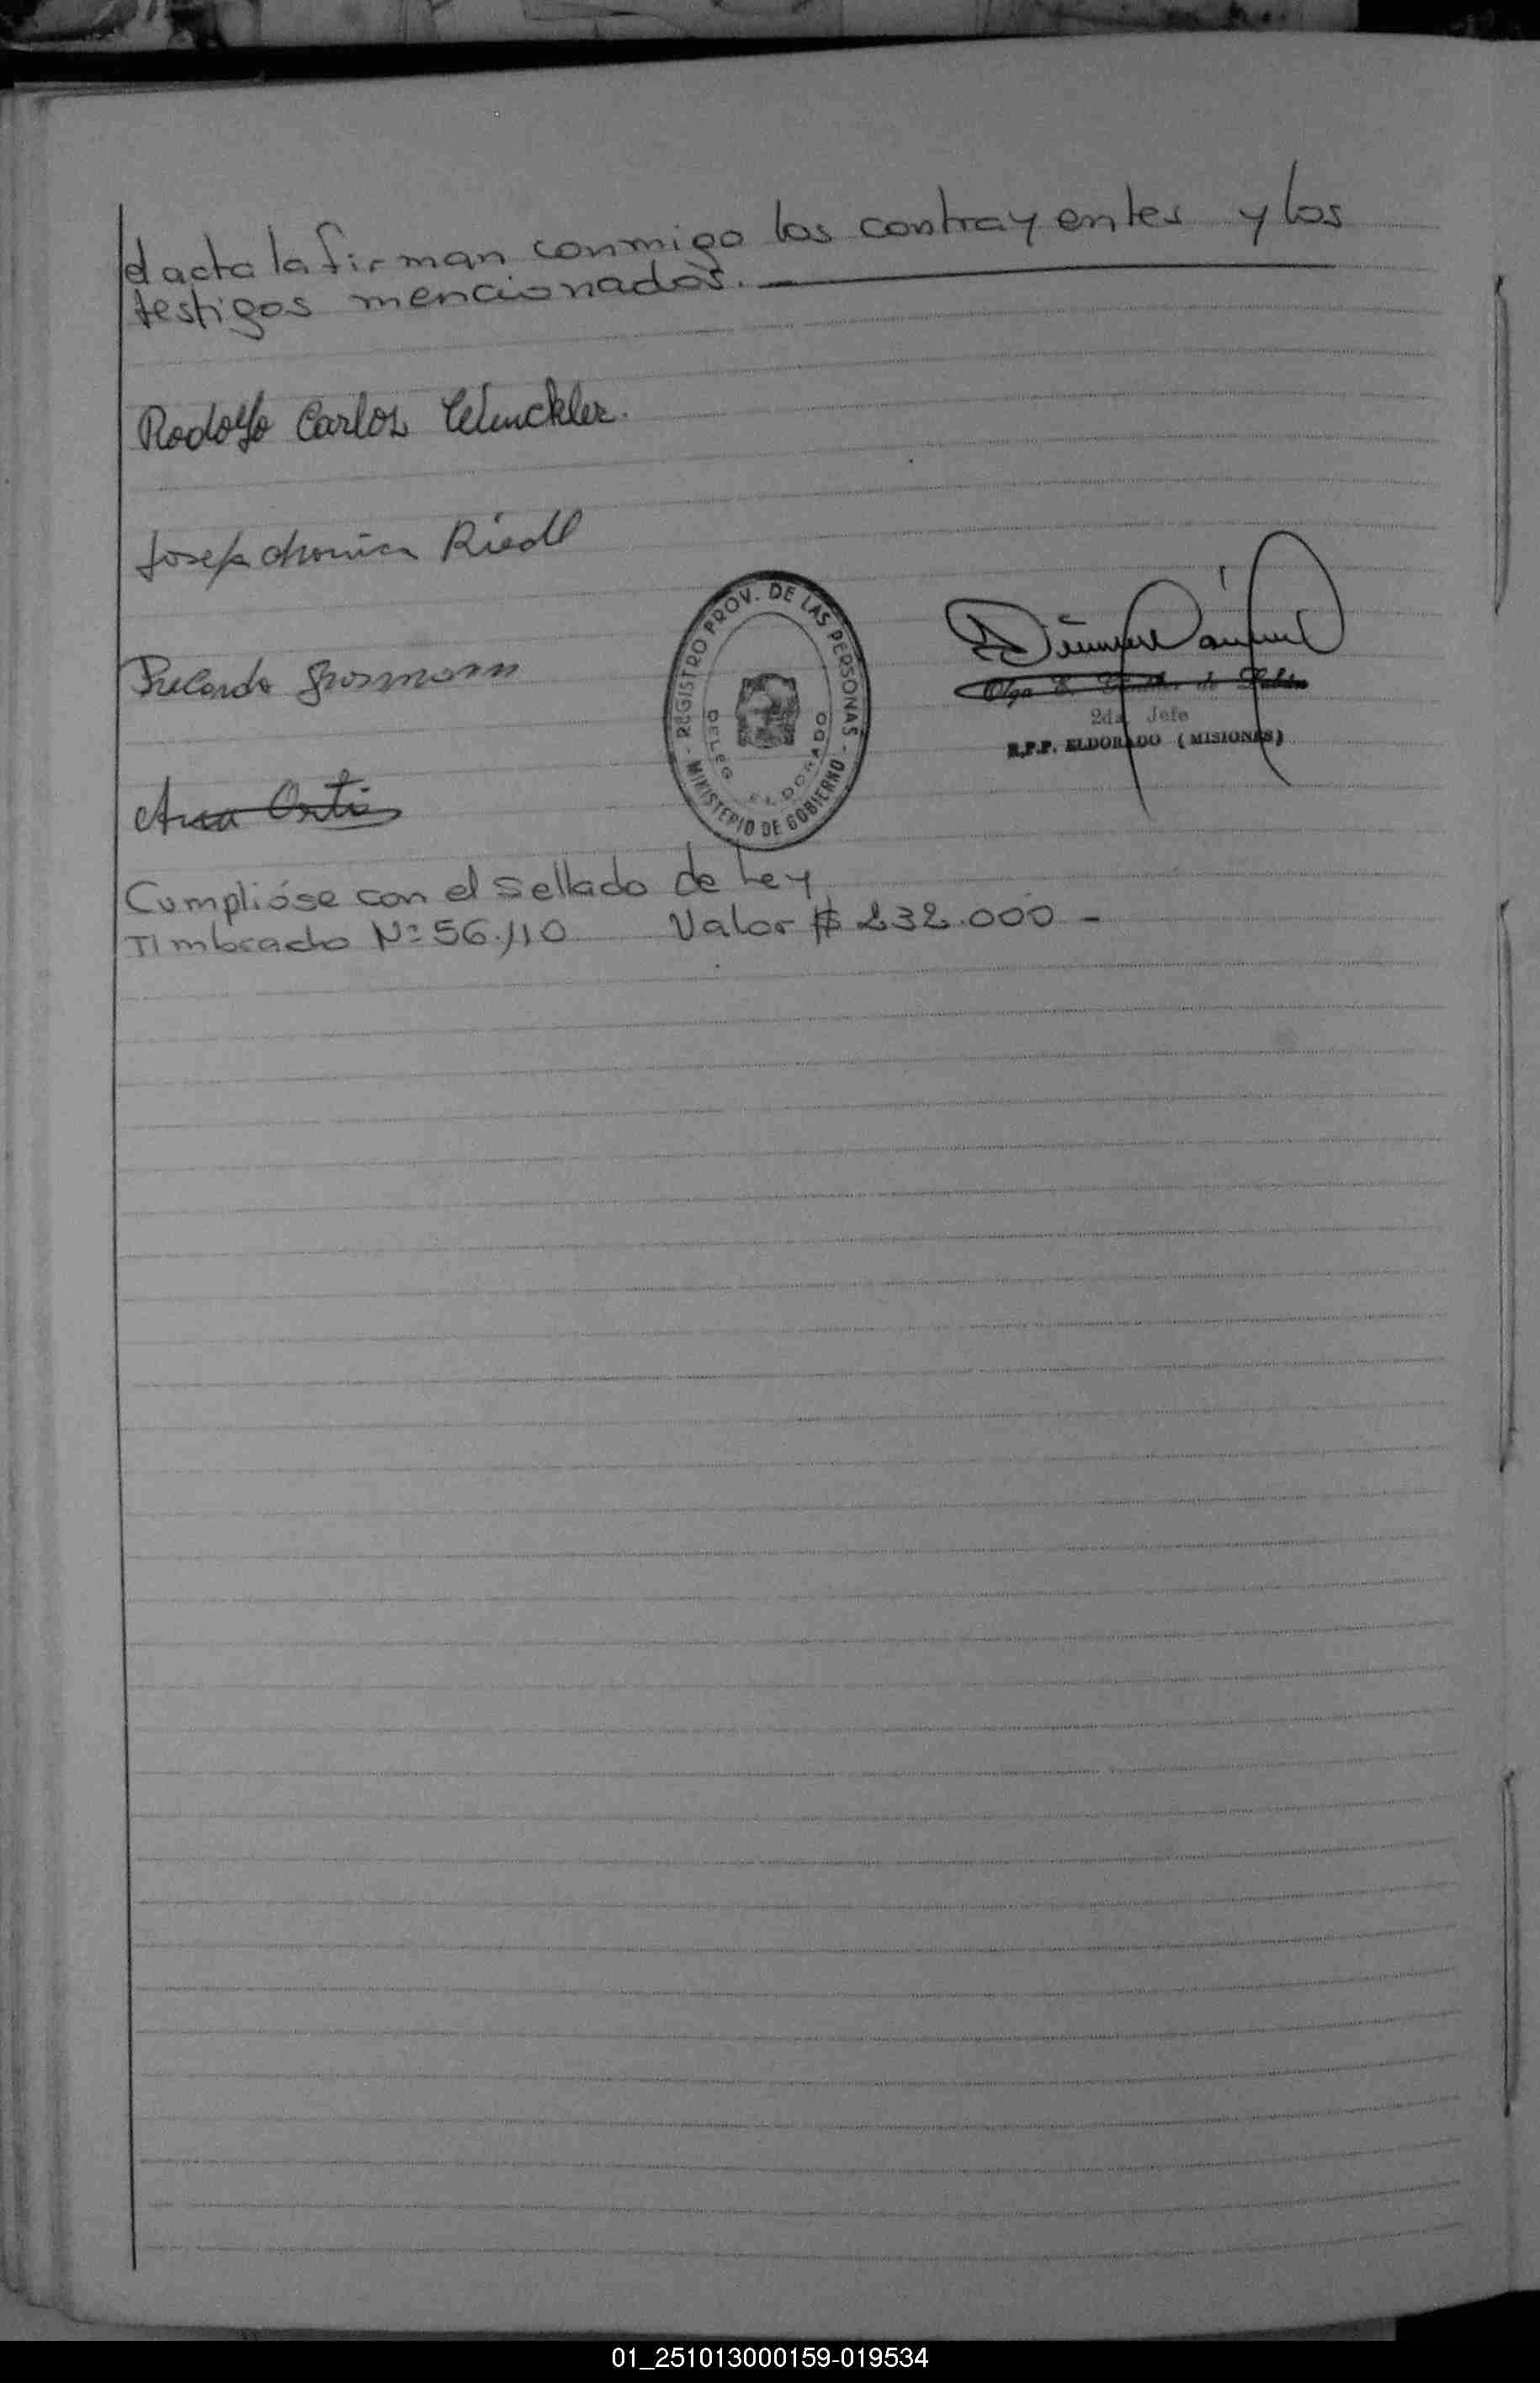 el acta la firman conmigo los contrayentes y los
testigos mencionados.
Rodolfo Carlos Winckler.
Josefa Monica Riedl
Ricardo Grosmann
Ana Ortiz
REGISTRO PROV. DE LAS PERSONAS - MINISTERIO DE GOBIERNO -
DELEG. ELDORADO
Olga E. de
2da. Jefe
R.P.P. ELDORADO (MISIONES)
Cumplióse con el sellado de Ley
Timbrado Nº 56.110 Valor $ 232.000 -
01_251013000159-019534